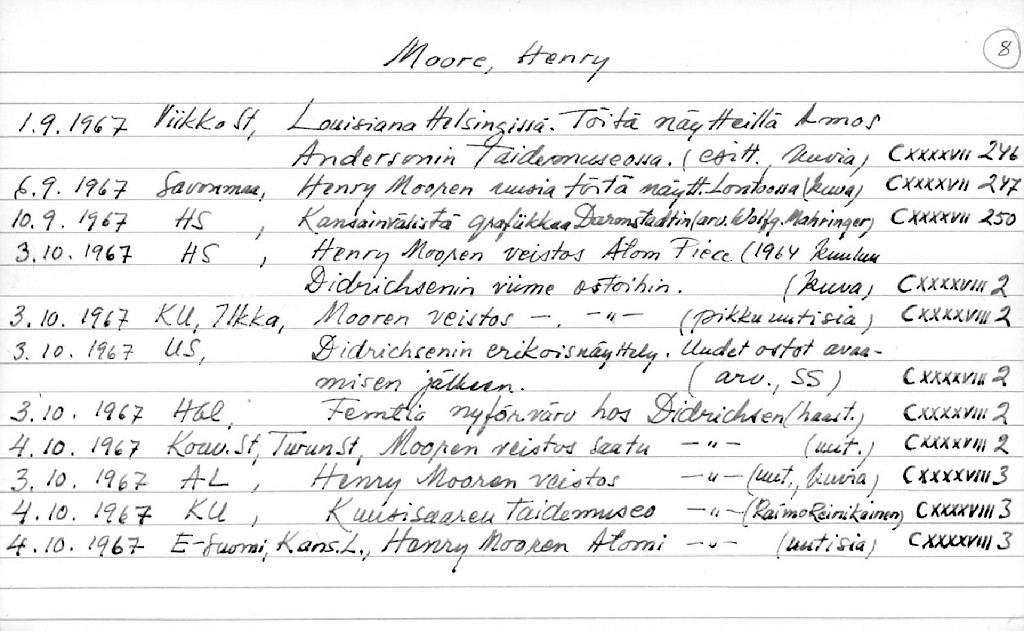 8
Moore, Henry
1.9.1967 ViikkoSt, Louisiana Helsingissä. Töitä näytteillä Amos
Andersonin Taidemuseossa. (esitt., kuvia) CXXXXVII 246
6.9.1967 Savonmaa, Henry Mooren uusia töitä näytt. Lontoossa (kuva) CXXXXVII 247
10.9.1967 HS, Kansainvälistä grafiikkaa Darmstadtin (arv. Wolfg. Mahringer) CXXXXVII 250
3.10.1967 HS, Henry Mooren veistos Atom Piece (1964 kuuluu
Didrichsenin viime ostoihin. (kuva) CXXXXVIII 2
3.10.1967 KU, Ilkka, Mooren veistos -. -"- (pikku uutisia) CXXXXVIII 2
3.10.1967 US, Didrichsenin erikoisnäyttely. Uudet ostot avaa-
misen jälkeen. (arv., SS) CXXXXVIII 2
3.10.1967 Hbl, Femtio nyförvärv hos Didrichsen (haast.) CXXXXVIII 2
4.10.1967 Kouv.St, TurunSt, Mooren veistos saatu -"- (uut.) CXXXXVIII 2
3.10.1967 AL, Henry Mooren veistos -"- (uut., kuvia) CXXXXVIII 3
4.10.1967 KU, Kuusisaaren taidemuseo -"- (Raimo Reinikainen) CXXXXVIII 3
4.10.1967 E-Suomi, Kans.L., Henry Mooren Atomi -"- (uutisia) CXXXXVIII 3